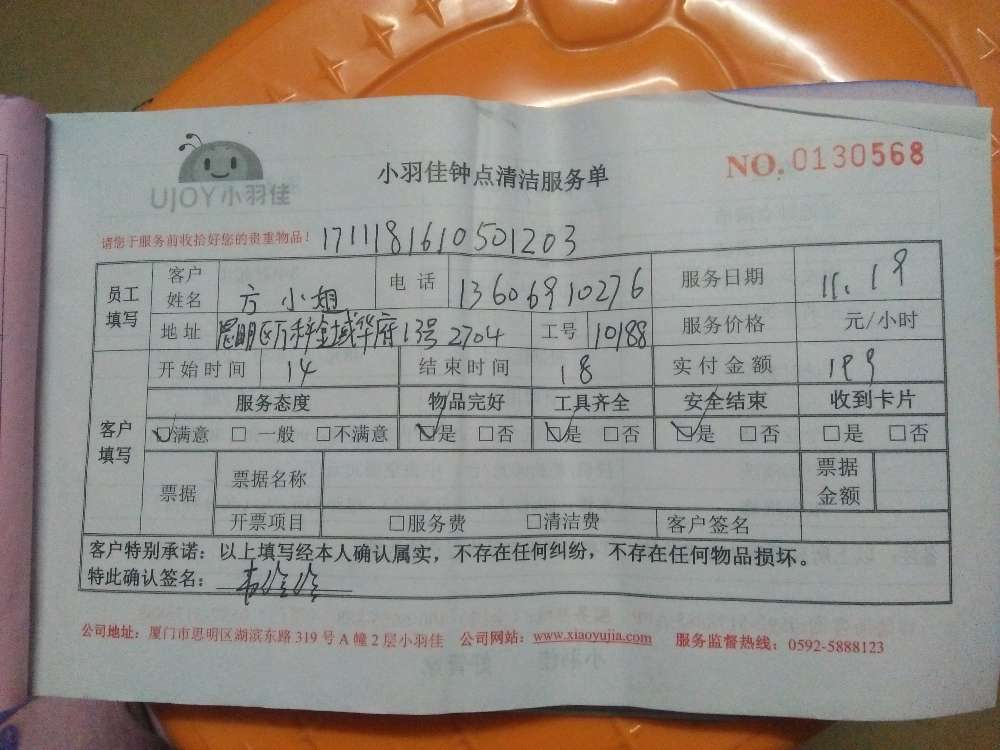 UJOY小羽佳
小羽佳钟点清洁服务单
NO.0130568
请您于服务前收拾好您的贵重物品! 1711181610501203
员工填写 客户姓名 方小姐 电话 13606910276 服务日期 11.19
地址 思明区万科金域华府13号2704 工号 10188 服务价格 元/小时
客户填写 开始时间 14 结束时间 18 实付金额 199
服务态度 物品完好 工具齐全 安全结束 收到卡片
☑满意 □一般 □不满意 ☑是 □否 ☑是 □否 ☑是 □否 □是 □否
票据 票据名称 票据金额
开票项目 □服务费 □清洁费 客户签名
客户特别承诺：以上填写经本人确认属实，不存在任何纠纷，不存在任何物品损坏。
特此确认签名：
公司地址：厦门市思明区湖滨东路319号A幢2层小羽佳 公司网站：www.xiaoyujia.com 服务监督热线：0592-5888123